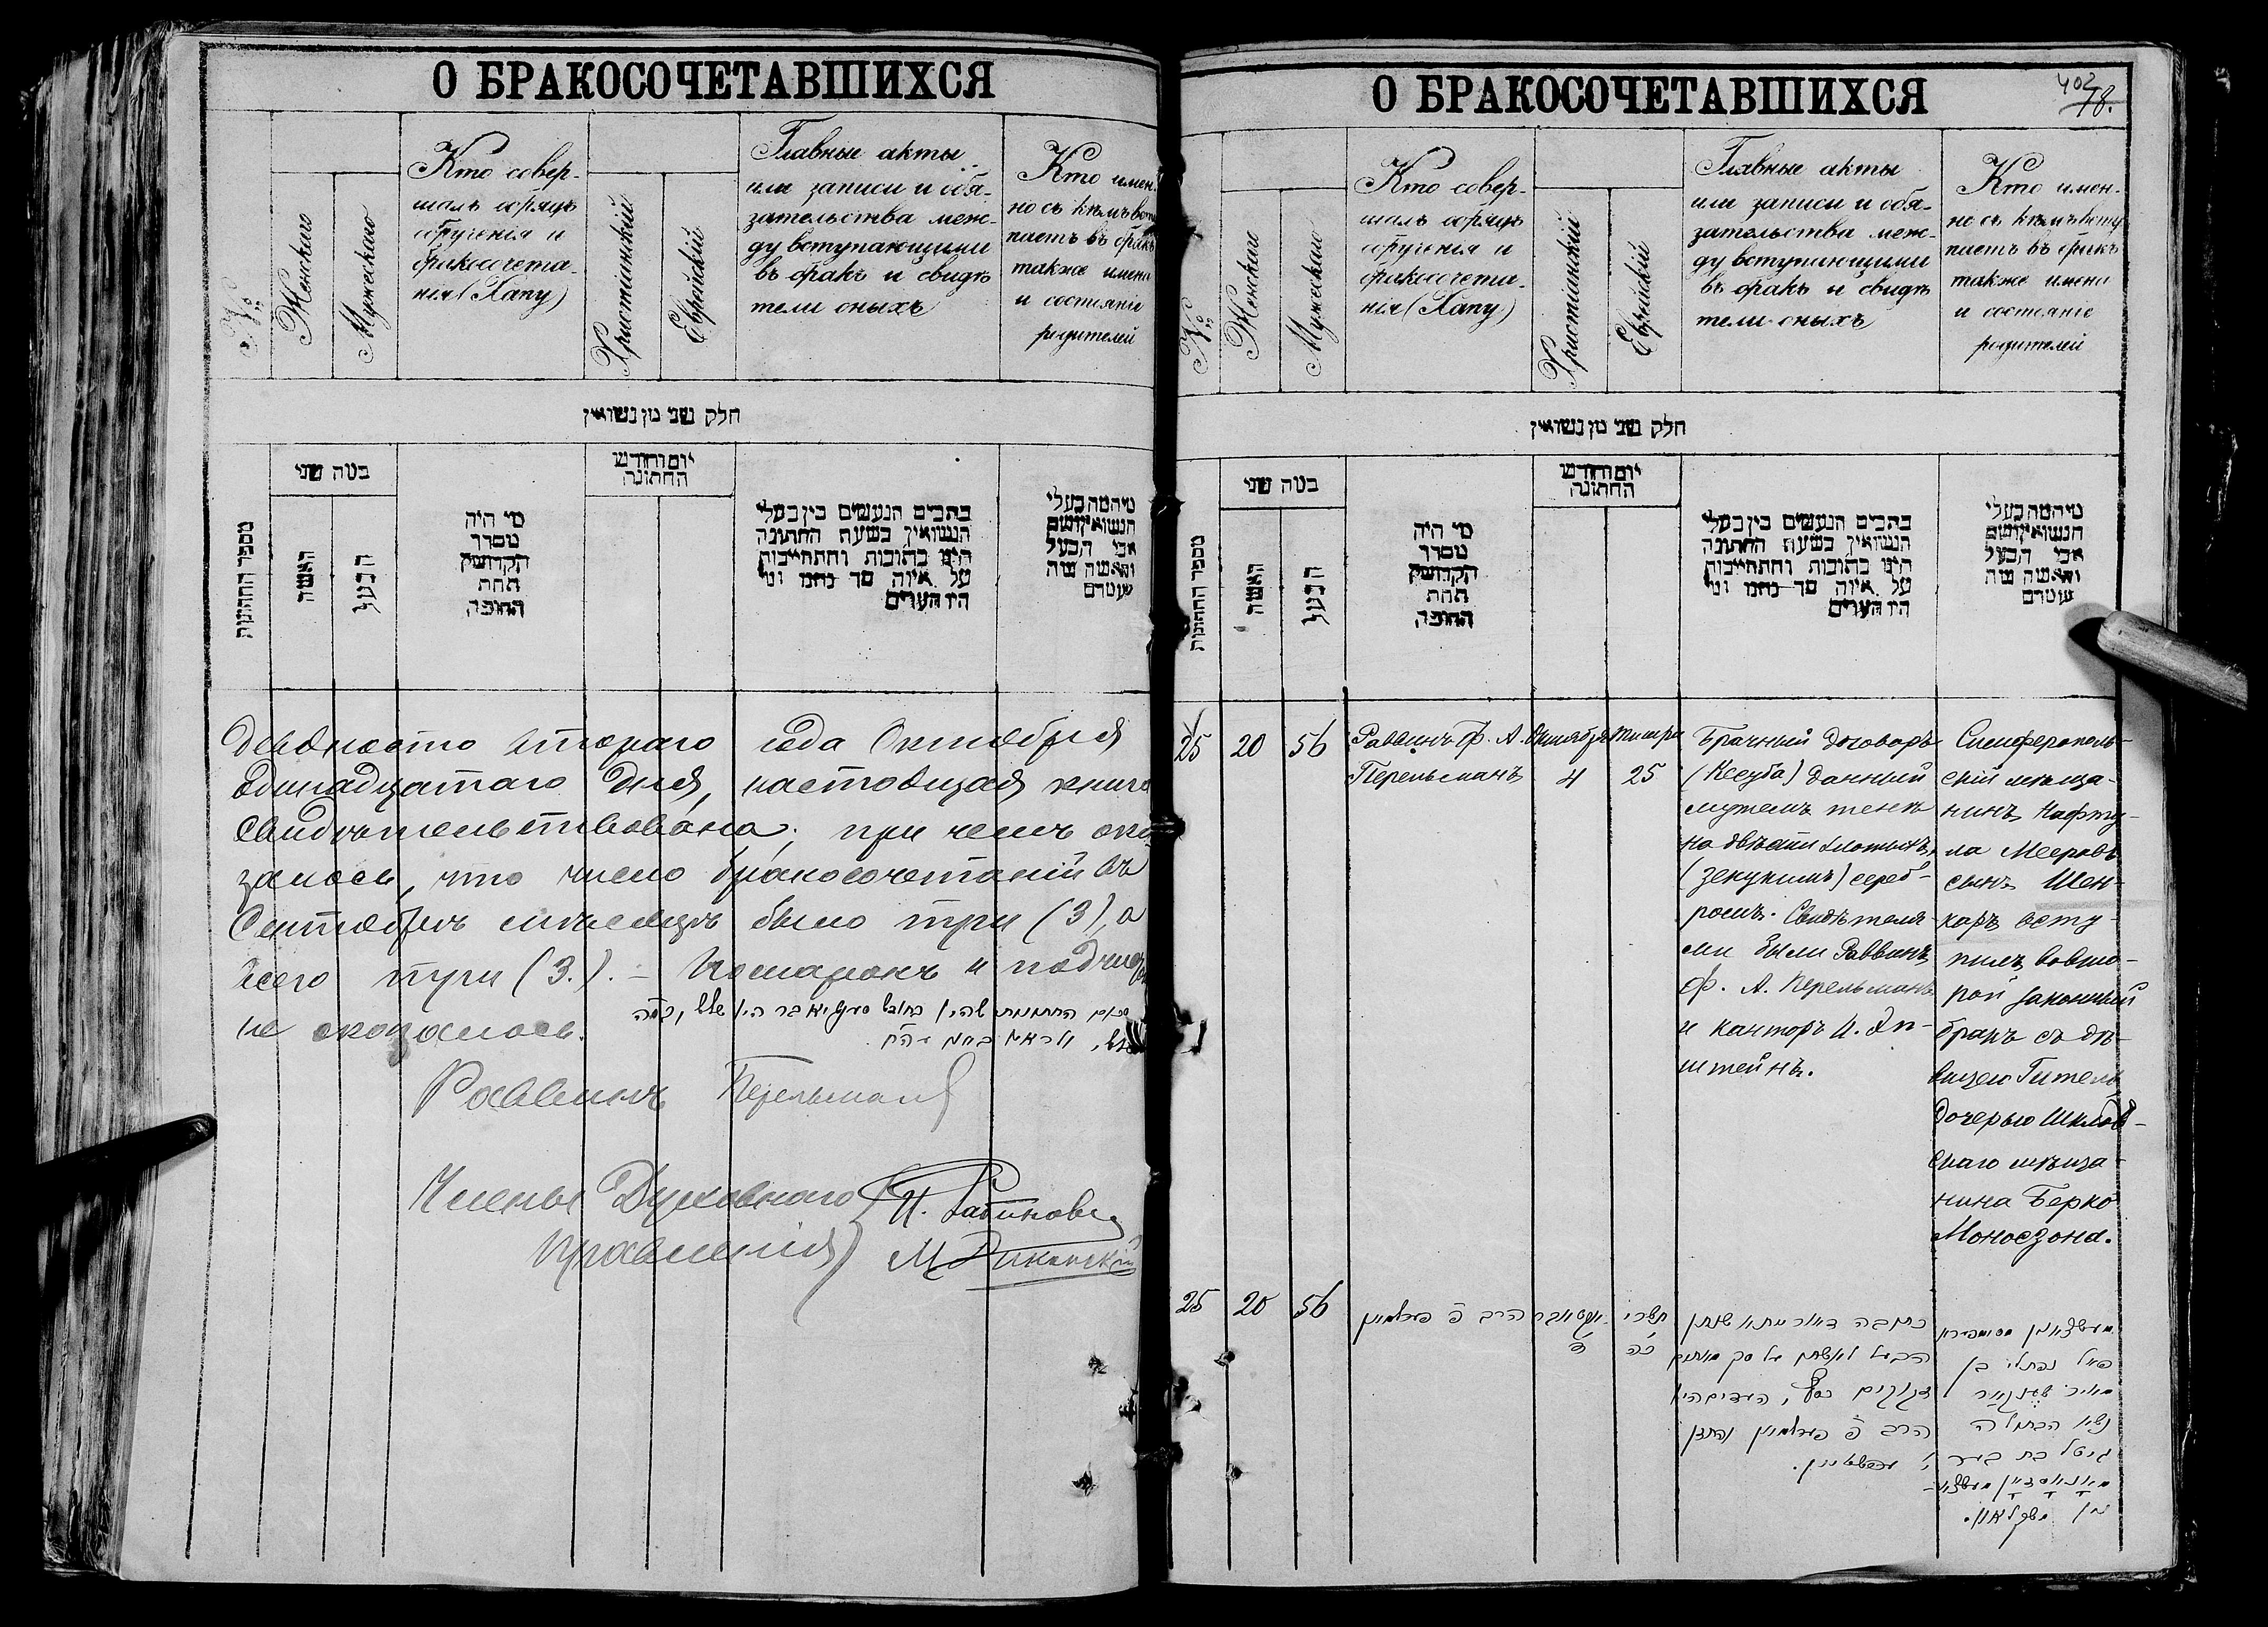 О БРАКОСОЧЕТАВШИХСЯ
№
Женскаго
Мужескаго
Кто совер-
шалъ обрядъ
обрученія и
бракосочета-
нія (Хапу)
Христіанскій
Еврейскій
Главные акты
или записи и обя-
зательства меж-
ду вступающими
въ бракъ и свидѣ
тели оныхъ
Кто имен-
но съ кѣмъ всту
паетъ въ бракъ
также имена
и состояніе
родителей
חלק שני מן נשואין
מספר החתונות
כמה שני
האשה
הבעל
מי היה
מסדר
הקדושין
תחת
החופה
יום וחודש
החתונה
כתבים הנעשים בין בעלי
הנשואין בשעת החתונה
היינו כתובות והתחייבות
על איזה סך נתנו ומי
היו העדים
מי המה בעלי
הנשואין ושם
אבי הבעל
והאשה ומה
מעמדם
Девяносто втораго года Октября
Одинадцатаго дня, настоящая книга
Свидѣтельствована; при чемъ ока
залось, что число бракосочетаній въ
Сентябрѣ мѣсяцѣ было три (3), а
всего три (3.). – Помарокъ и подчис
не оказалось.
Раввинъ Перельманъ
Члены Духовнаго
Правленія
О БРАКОСОЧЕТАВШИХСЯ
402
78.
№
Женскаго
Мужескаго
Кто совер-
шалъ обрядъ
обрученія и
бракосочета-
нія (Хапу)
Христіанскій
Еврейскій
Главные акты
или записи и обя-
зательства меж-
ду вступающими
въ бракъ и свидѣ
тели оныхъ
Кто имен-
но съ кѣмъ всту
паетъ въ бракъ
также имена
и состояніе
родителей
חלק שני מן נשואין
מספר החתונות
כמה שני
האשה
הבעל
מי היה
מסדר
הקדושין
תחת
החופה
יום וחודש
החתונה
כתבים הנעשים בין בעלי
הנשואין בשעת החתונה
היינו כתובות והתחייבות
על איזה סך נתנו ומי
היו העדים
מי המה בעלי
הנשואין ושם
אבי הבעל
והאשה ומה
מעמדם
25
20
56
Раввинъ Ф. А.
Перельманъ
Октября
4
Тишри
25
Брачный договоръ
(Ксуба) данный
мужемъ женѣ
на двѣсти злотыхъ
(зекукимъ) сереб-
ромъ. Свидѣтеля-
ми были Раввинъ
Ф. А. Перельманъ
и канторъ И. Эп-
штейнъ.
Симферополь-
скій мѣща-
нинъ Нафту-
ла Мееровъ
сынъ Шен-
каръ всту-
пилъ во вто-
рой законный
бракъ съ дѣ-
вицею Гитель
дочерью Шклов-
скаго мѣща-
нина Берко
Моносзона.
25
20
56
הרב פ פערלמאן
אקטאבר
ד
תשרי
כה
כתובה דאורייתא שנתן
הבעל לאשתו על סך מאתים
זקוקים כסף, העדים היו
הרב פ פערלמאן והחזן
י עפשטיין.
נפתלי בן
מאיר שענקאר
נשא הבתולה
גיטל בת בער